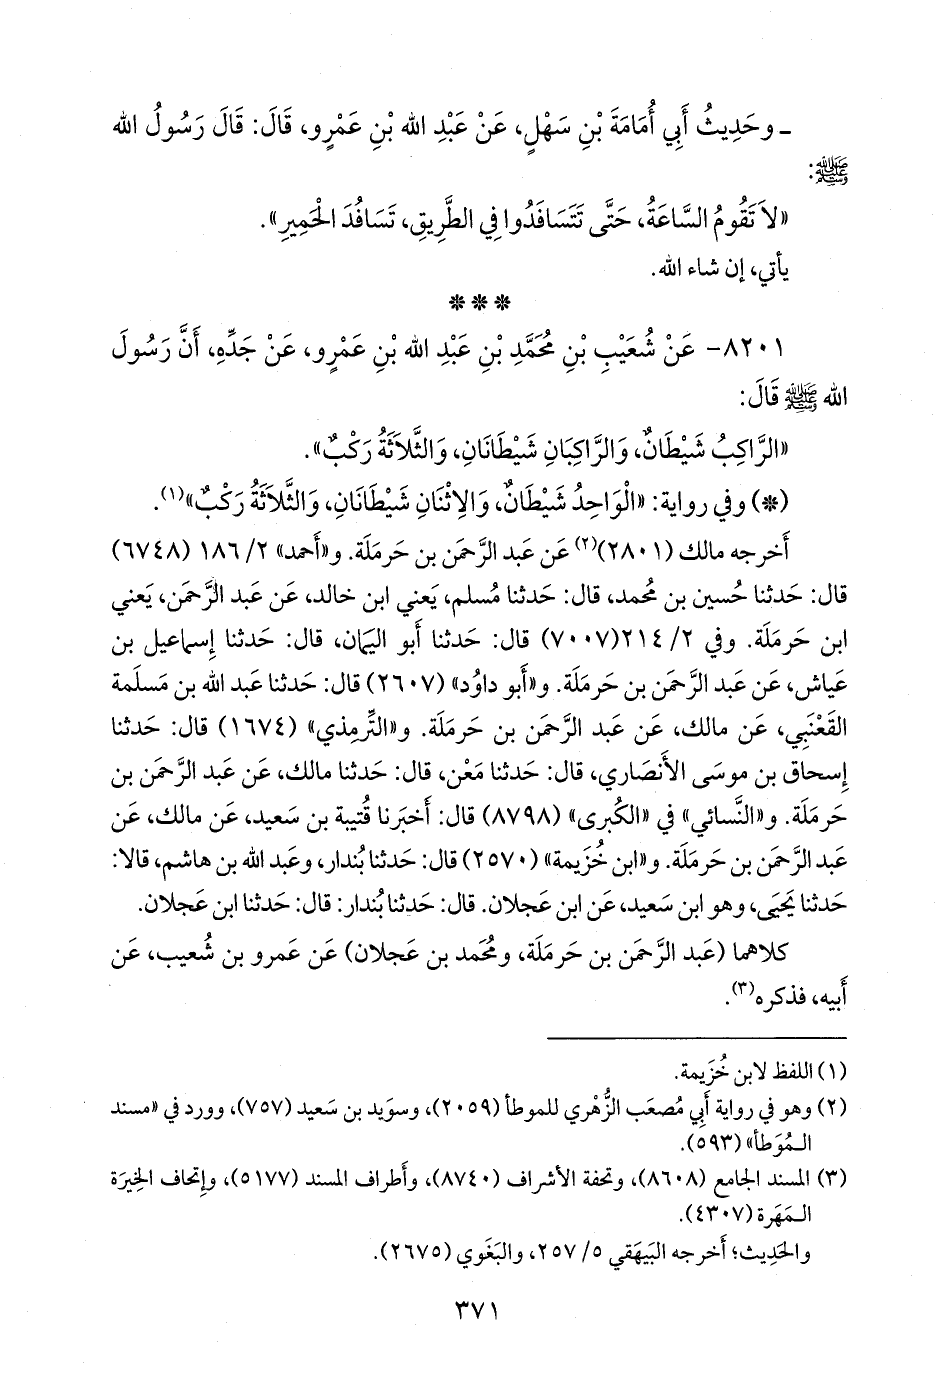 ـ وحَدِيثُ أَبِي أُمَامَةَ بْنِ سَهْلٍ، عَنْ عَبْدِ الله بْنِ عَمْرٍو، قَالَ: قَالَ رَسُولُ الله
ﷺ:
«لاَ تَقُومُ السَّاعَةُ، حَتَّى تَتَسَافَدُوا فِي الطَّرِيقِ، تَسَافُدَ الْحَمِيرِ».
يأتي، إن شاء الله.
***
٨٢٠١- عَنْ شُعَيْبِ بْنِ مُحَمَّدِ بْنِ عَبْدِ الله بْنِ عَمْرٍو، عَنْ جَدِّهِ، أَنَّ رَسُولَ
الله ﷺ قَالَ:
«الرَّاكِبُ شَيْطَانٌ، وَالرَّاكِبَانِ شَيْطَانَانِ، وَالثَّلاَثَةُ رَكْبٌ».
(*) وفي رواية: «الْوَاحِدُ شَيْطَانٌ، وَالاِثْنَانِ شَيْطَانَانِ، وَالثَّلاَثَةُ رَكْبٌ»(١).
أخرجه مالك (٢٨٠١)(٢) عَن عبد الرَّحمَن بن حَرمَلَة. و«أَحمد» ٢/ ١٨٦ (٦٧٤٨)
قال: حَدثنا حُسين بن مُحمد، قال: حَدثنا مُسلم، يَعني ابن خالد، عَن عبد الرَّحمَن، يَعني
ابن حَرمَلَة. وفي ٢/ ٢١٤(٧٠٠٧) قال: حَدثنا أَبو اليَمان، قال: حَدثنا إِسماعيل بن
عَياش، عَن عبد الرَّحمَن بن حَرمَلَة. و«أَبو داوُد» (٢٦٠٧) قال: حَدثنا عبد الله بن مَسلَمة
القَعْنَبِي، عَن مالك، عَن عبد الرَّحمَن بن حَرمَلَة. و«التِّرمِذي» (١٦٧٤) قال: حَدثنا
إِسحاق بن موسَى الأَنصَاري، قال: حَدثنا مَعْن، قال: حَدثنا مالك، عَن عبد الرَّحمَن بن
حَرمَلَة. و«النَّسائي» في «الكُبرى» (٨٧٩٨) قال: أَخبَرنا قُتيبة بن سَعيد، عَن مالك، عَن
عبد الرَّحمَن بن حَرمَلَة. و«ابن خُزيمة» (٢٥٧٠) قال: حَدثنا بُندار، وعَبد الله بن هاشم، قالا:
حَدثنا يَحيَى، وهو ابن سَعيد، عَن ابن عَجلان. قال: حَدثنا بُندار: قال: حَدثنا ابن عَجلان.
كلاهما (عَبد الرَّحمَن بن حَرمَلَة، ومُحمد بن عَجلان) عَن عَمرو بن شُعيب، عَن
أَبيه، فذكره(٣).
(١) اللفظ لابن خُزَيمة.
(٢) وهو في رواية أَبِي مُصعَب الزُّهْري للموطأ (٢٠٥٩)، وسوَيد بن سَعيد (٧٥٧)، وورد في «مسند
المُوَطأ» (٥٩٣).
(٣) المسند الجامع (٨٦٠٨)، وتحفة الأشراف (٨٧٤٠)، وأَطراف المسند (٥١٧٧)، وإتحاف الخِيرَة
المَهَرة (٤٣٠٧).
والحَدِيث؛ أَخرجه البَيهَقي ٥/ ٢٥٧، والبَغَوي (٢٦٧٥).
٣٧١